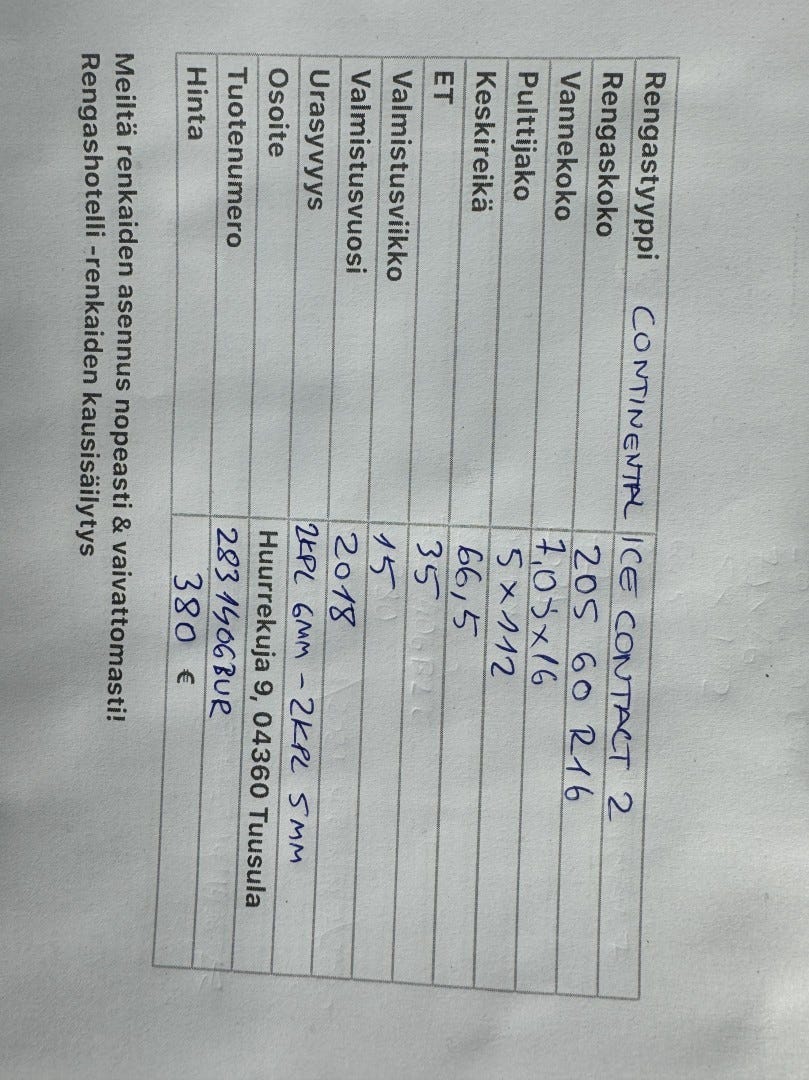 Rengastyyppi CONTINENTAL ICE CONTACT 2
Rengaskoko 205 60 R16
Vannekoko 7,0J x 16
Pulttijako 5 x 112
Keskireikä 66,5
ET 35
Valmistusviikko 15
Valmistusvuosi 2018
Urasyvyys 2KPL 6MM - 2KPL 5MM
Osoite Huurrekuja 9, 04360 Tuusula
Tuotenumero 2831406BUR
Hinta 380 €
Meiltä renkaiden asennus nopeasti & vaivattomasti!
Rengashotelli -renkaiden kausisäilytys